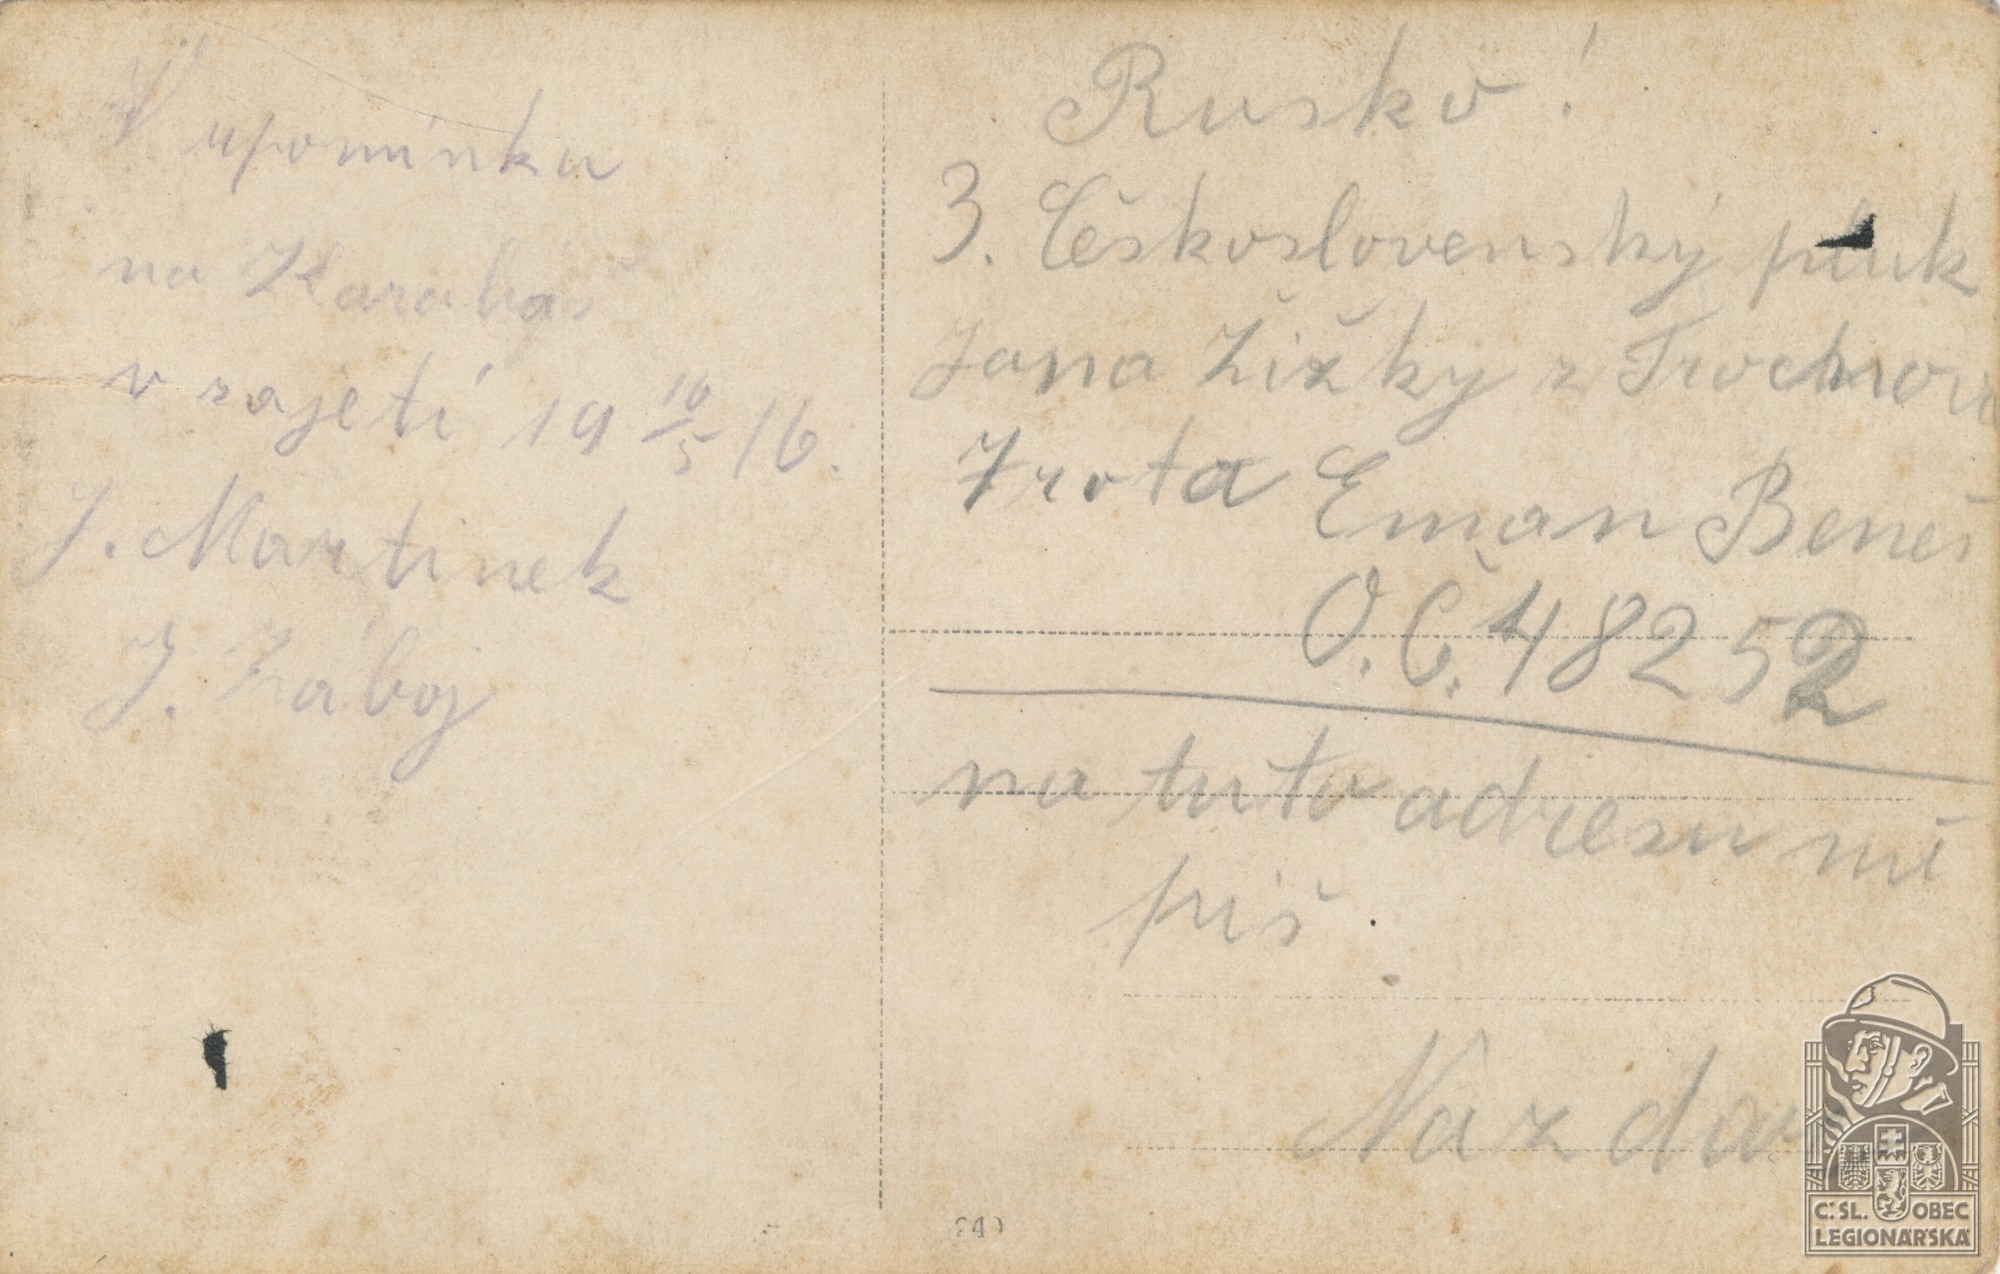 V upomínku
na Karabáš
v zajetí 19 10/5 16.
J. Martinek
J. Záboj
Rusko!
3. Československý pluk
Jana Žižky z Trocnova
7 rota Eman Beneš
O.Č. 48252
na tuto adresu mě
piš.
Nazdar
24)
Č.SL. OBEC
LEGIONÁŘSKÁ